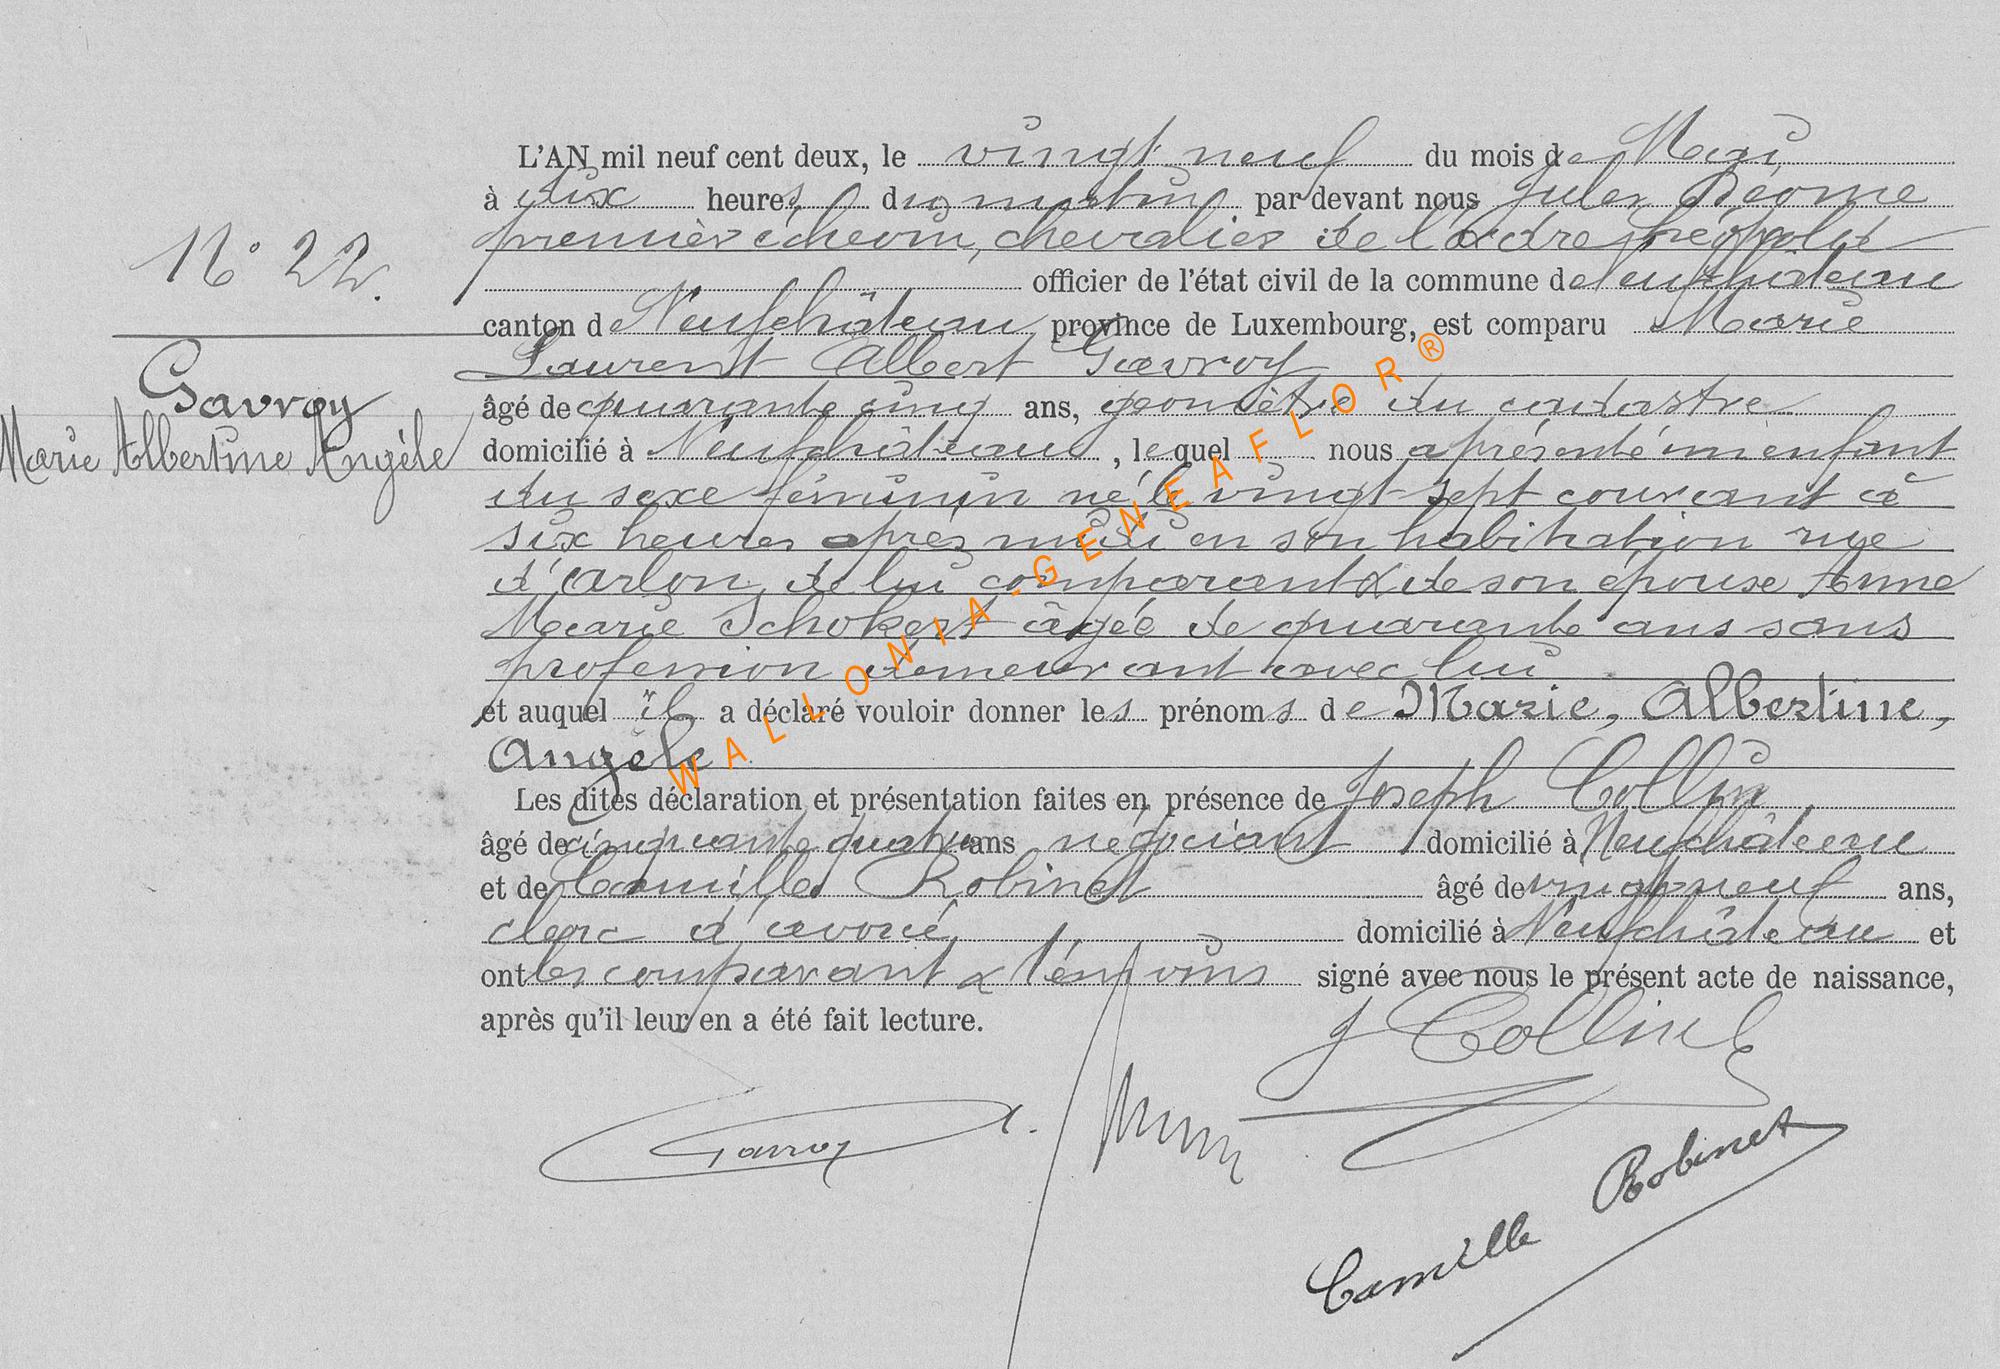 L'AN mil neuf cent deux, le vingt neuf du mois de Mai
à dix heures du matin par devant nous Jules
premier échevin, chevalier de l'ordre Léopold
N° 22.
officier de l'état civil de la commune de Neufchâteau
canton de Neufchâteau province de Luxembourg, est comparu Marie
Laurent Albert Gavroy
Gavroy
âgé de quarante cinq ans, géomètre du cadastre
Marie Albertine Angèle
domicilié à Neufchâteau, lequel nous a présenté un enfant
du sexe féminin né le vingt sept courant à
six heures après midi en son habitation rue
d'Arlon, de lui comparant & de son épouse Anne
Marie Schokert âgée de quarante ans sans
profession demeurant avec lui
et auquel il a déclaré vouloir donner les prénoms de Marie, Albertine,
Angèle
Les dites déclaration et présentation faites en présence de Joseph Collin
âgé de cinquante quatre ans négociant domicilié à Neufchâteau
et de Camille Robinet âgé de vingt neuf ans,
clerc d'avoué, domicilié à Neufchâteau et
ont les comparant & témoins signé avec nous le présent acte de naissance,
après qu'il leur en a été fait lecture.
J Collin
Gavroy
Camille Robinet
WALLONIA-GENEAFLOR®